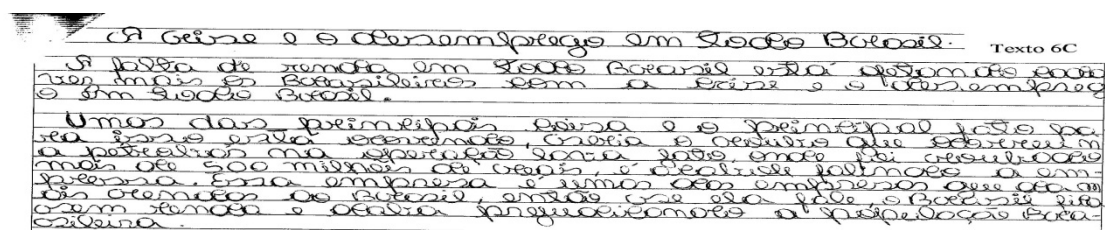 A Crise e o desemprego em todo Brasil.
Texto 6C
A falta de renda em todo Brasil está afetando cada
vez mais os Brasileiros com a crise e o desempreg
o em todo Brasil.
Umas das principais coisa e o principal fato pa
ra isso esta ocorrendo, o que
a petrobras na operação lava jato, onde foi roubado
mais de 500 milhões de reais, e falindo a em-
presa. Essa empresa é umas das empresas que da m
ais renda ao Brasil, então se ela fale, o Brasil fica
sem renda e prejudicando a população Bra-
sileira.